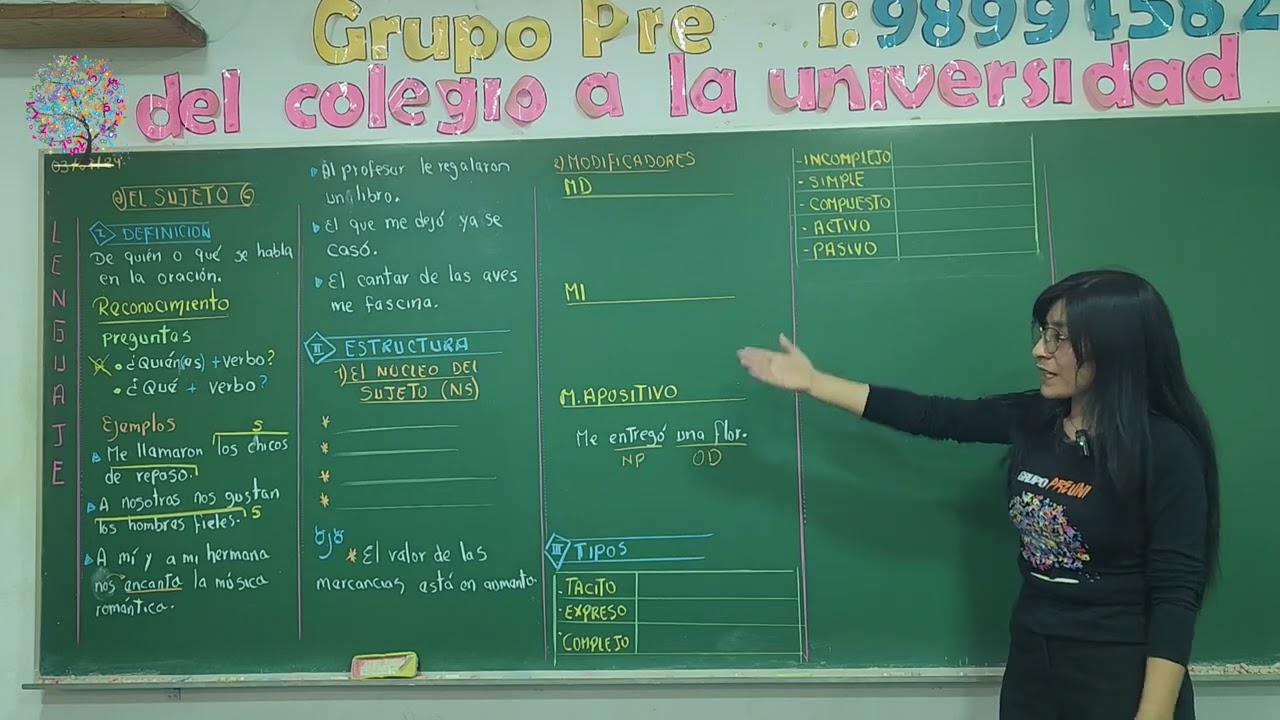 Grupo Pre i: 98997582
del colegio a la universidad
03/07/24
LENGUAJE
EL SUJETO (S)
I DEFINICIÓN
De quién o qué se habla
en la oración.
Reconocimiento
preguntas
• ¿Quién(es) + verbo?
• ¿Qué + verbo?
Ejemplos
S
Me llamaron los chicos
de reparto.
A nosotras nos gustan
los hombres fieles. S
A mí y a mi hermana
nos encanta la música
romántica.
Al profesor le regalaron
un libro.
El que me dejó ya se
casó.
El cantar de las aves
me fascina.
II ESTRUCTURA
1) El NÚCLEO DEL
SUJETO (NS)
*
*
*
*
Ojo
* El valor de las
mercancías está en aumento.
2) MODIFICADORES
MD
MI
M. APOSITIVO
Me entregó una flor.
NP OD
III TIPOS
- TÁCITO
- EXPRESO
- COMPLEJO
- INCOMPLEJO
- SIMPLE
- COMPUESTO
- ACTIVO
- PASIVO
GRUPO PREUNI